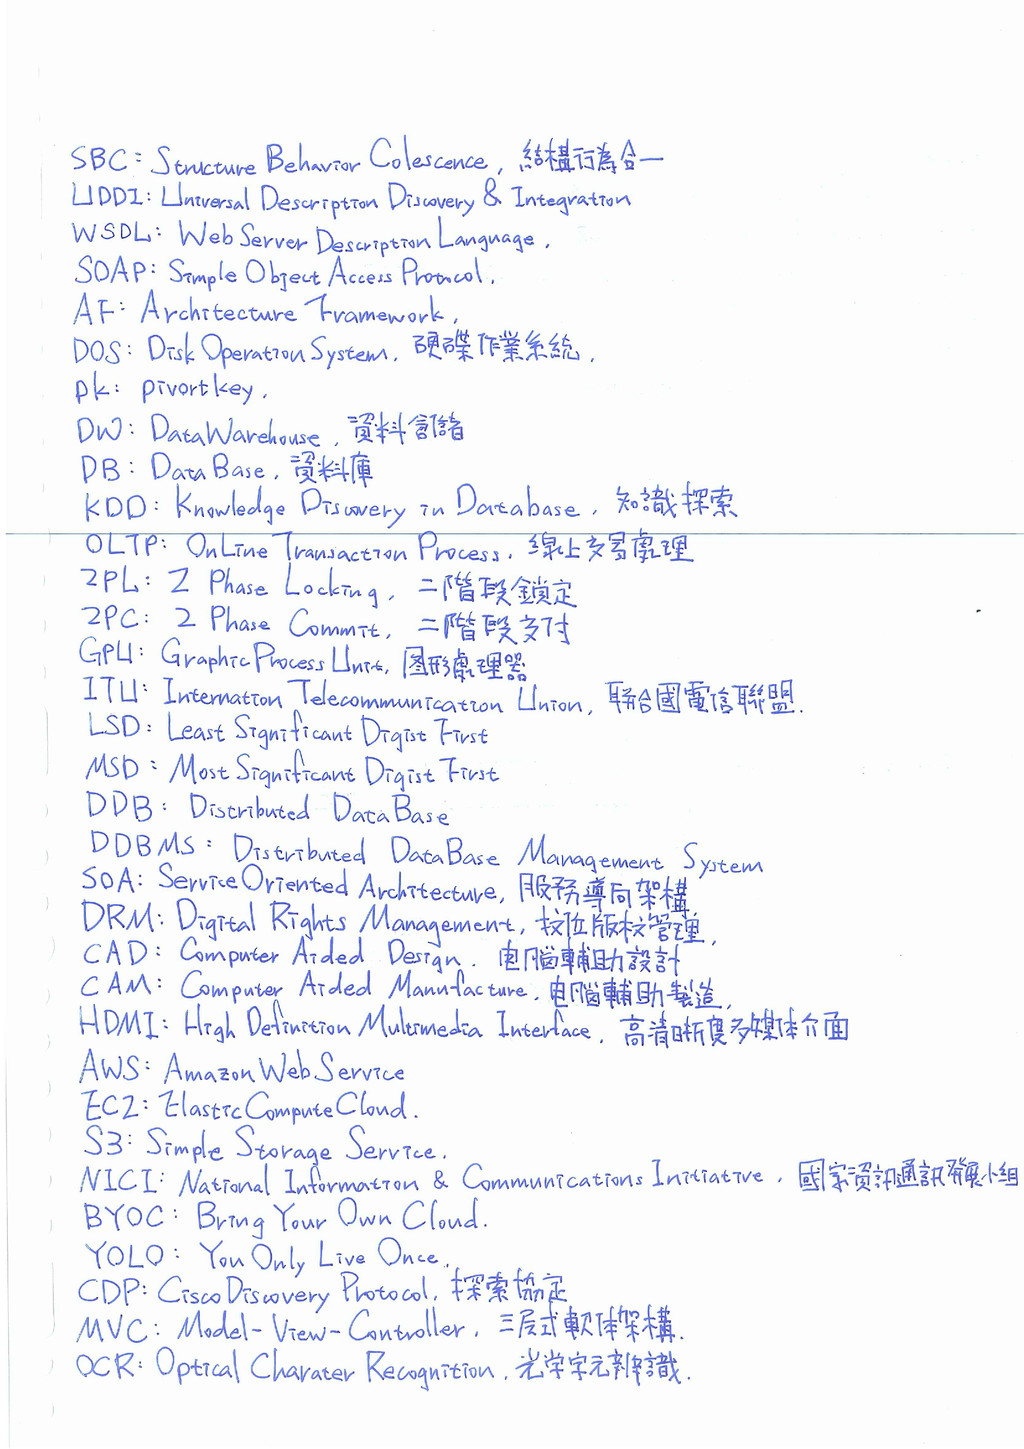 SBC: Structure Behavior Colescence, 結構行為合一
UDDI: Universal Description Discovery & Integration
WSDL: Web Server Description Language,
SOAP: Simple Object Access Protocol.
AF: Architecture Framework,
DOS: Disk Operation System, 硬碟作業系統,
pk: pivort key,
DW: Data Warehouse, 資料倉儲
DB: Data Base, 資料庫
KDD: Knowledge Discovery in Database, 知識探索
OLTP: OnLine Transaction Process, 線上交易處理
2PL: 2 Phase Locking, 二階段鎖定
2PC: 2 Phase Commit, 二階段交付
GPU: Graphic Process Unit, 圖形處理器
ITU: Internation Telecommunication Union, 聯合國電信聯盟.
LSD: Least Significant Digist First
MSD: Most Significant Digist First
DDB: Distributed DataBase
DDBMS: Distributed DataBase Management System
SOA: Service Oriented Architecture, 服務導向架構
DRM: Digital Rights Management, 校位版权管理,
CAD: Computer Aided Design. 电腦輔助設計
CAM: Computer Aided Manufacture, 电腦輔助製造,
HDMI: High Definition Multimedia Interface, 高清晰度多媒体介面
AWS: Amazon Web Service
EC2: Elastic Compute Cloud.
S3: Simple Storage Service,
NICI: National Information & Communications Initiative, 國家資訊通訊發展小組
BYOC: Bring Your Own Cloud.
YOLO: You Only Live Once,
CDP: Cisco Discovery Protocol, 探索協定
MVC: Model-View-Controller, 三层式軟体架構.
OCR: Optical Charater Recognition, 光学字元辨識.